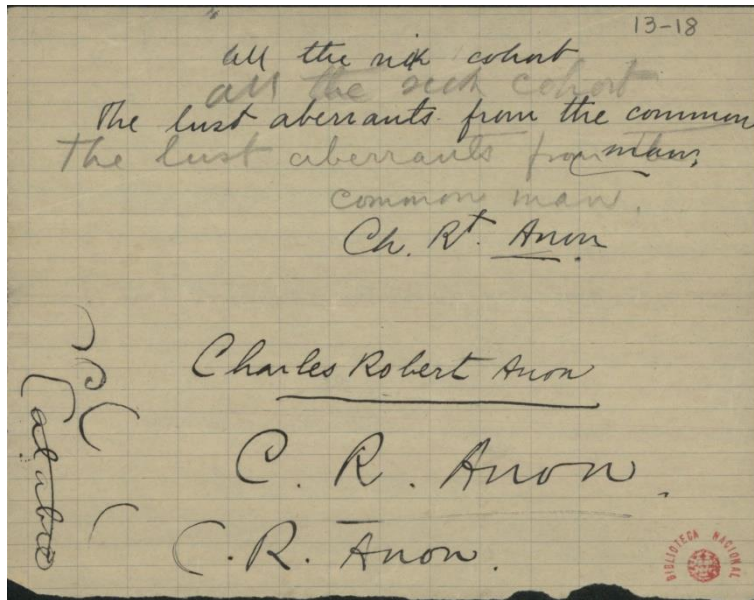 13-18
all the sick cohort
all the sick cohort
The lust aberrants from the common
man,
The lust aberrants from the
common man.
Ch. Rt. Anon
Charles Robert Anon
C. R. Anon.
C. R. Anon.
BIBLIOTECA NACIONAL